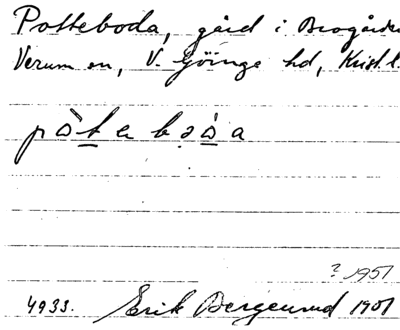 Potteboda, gård i Brogårda
Verum sn, V. Göinge hd, Krist. l.
pòta bǝ̀a
? 1951
4933. Erik Bergeurud 1951